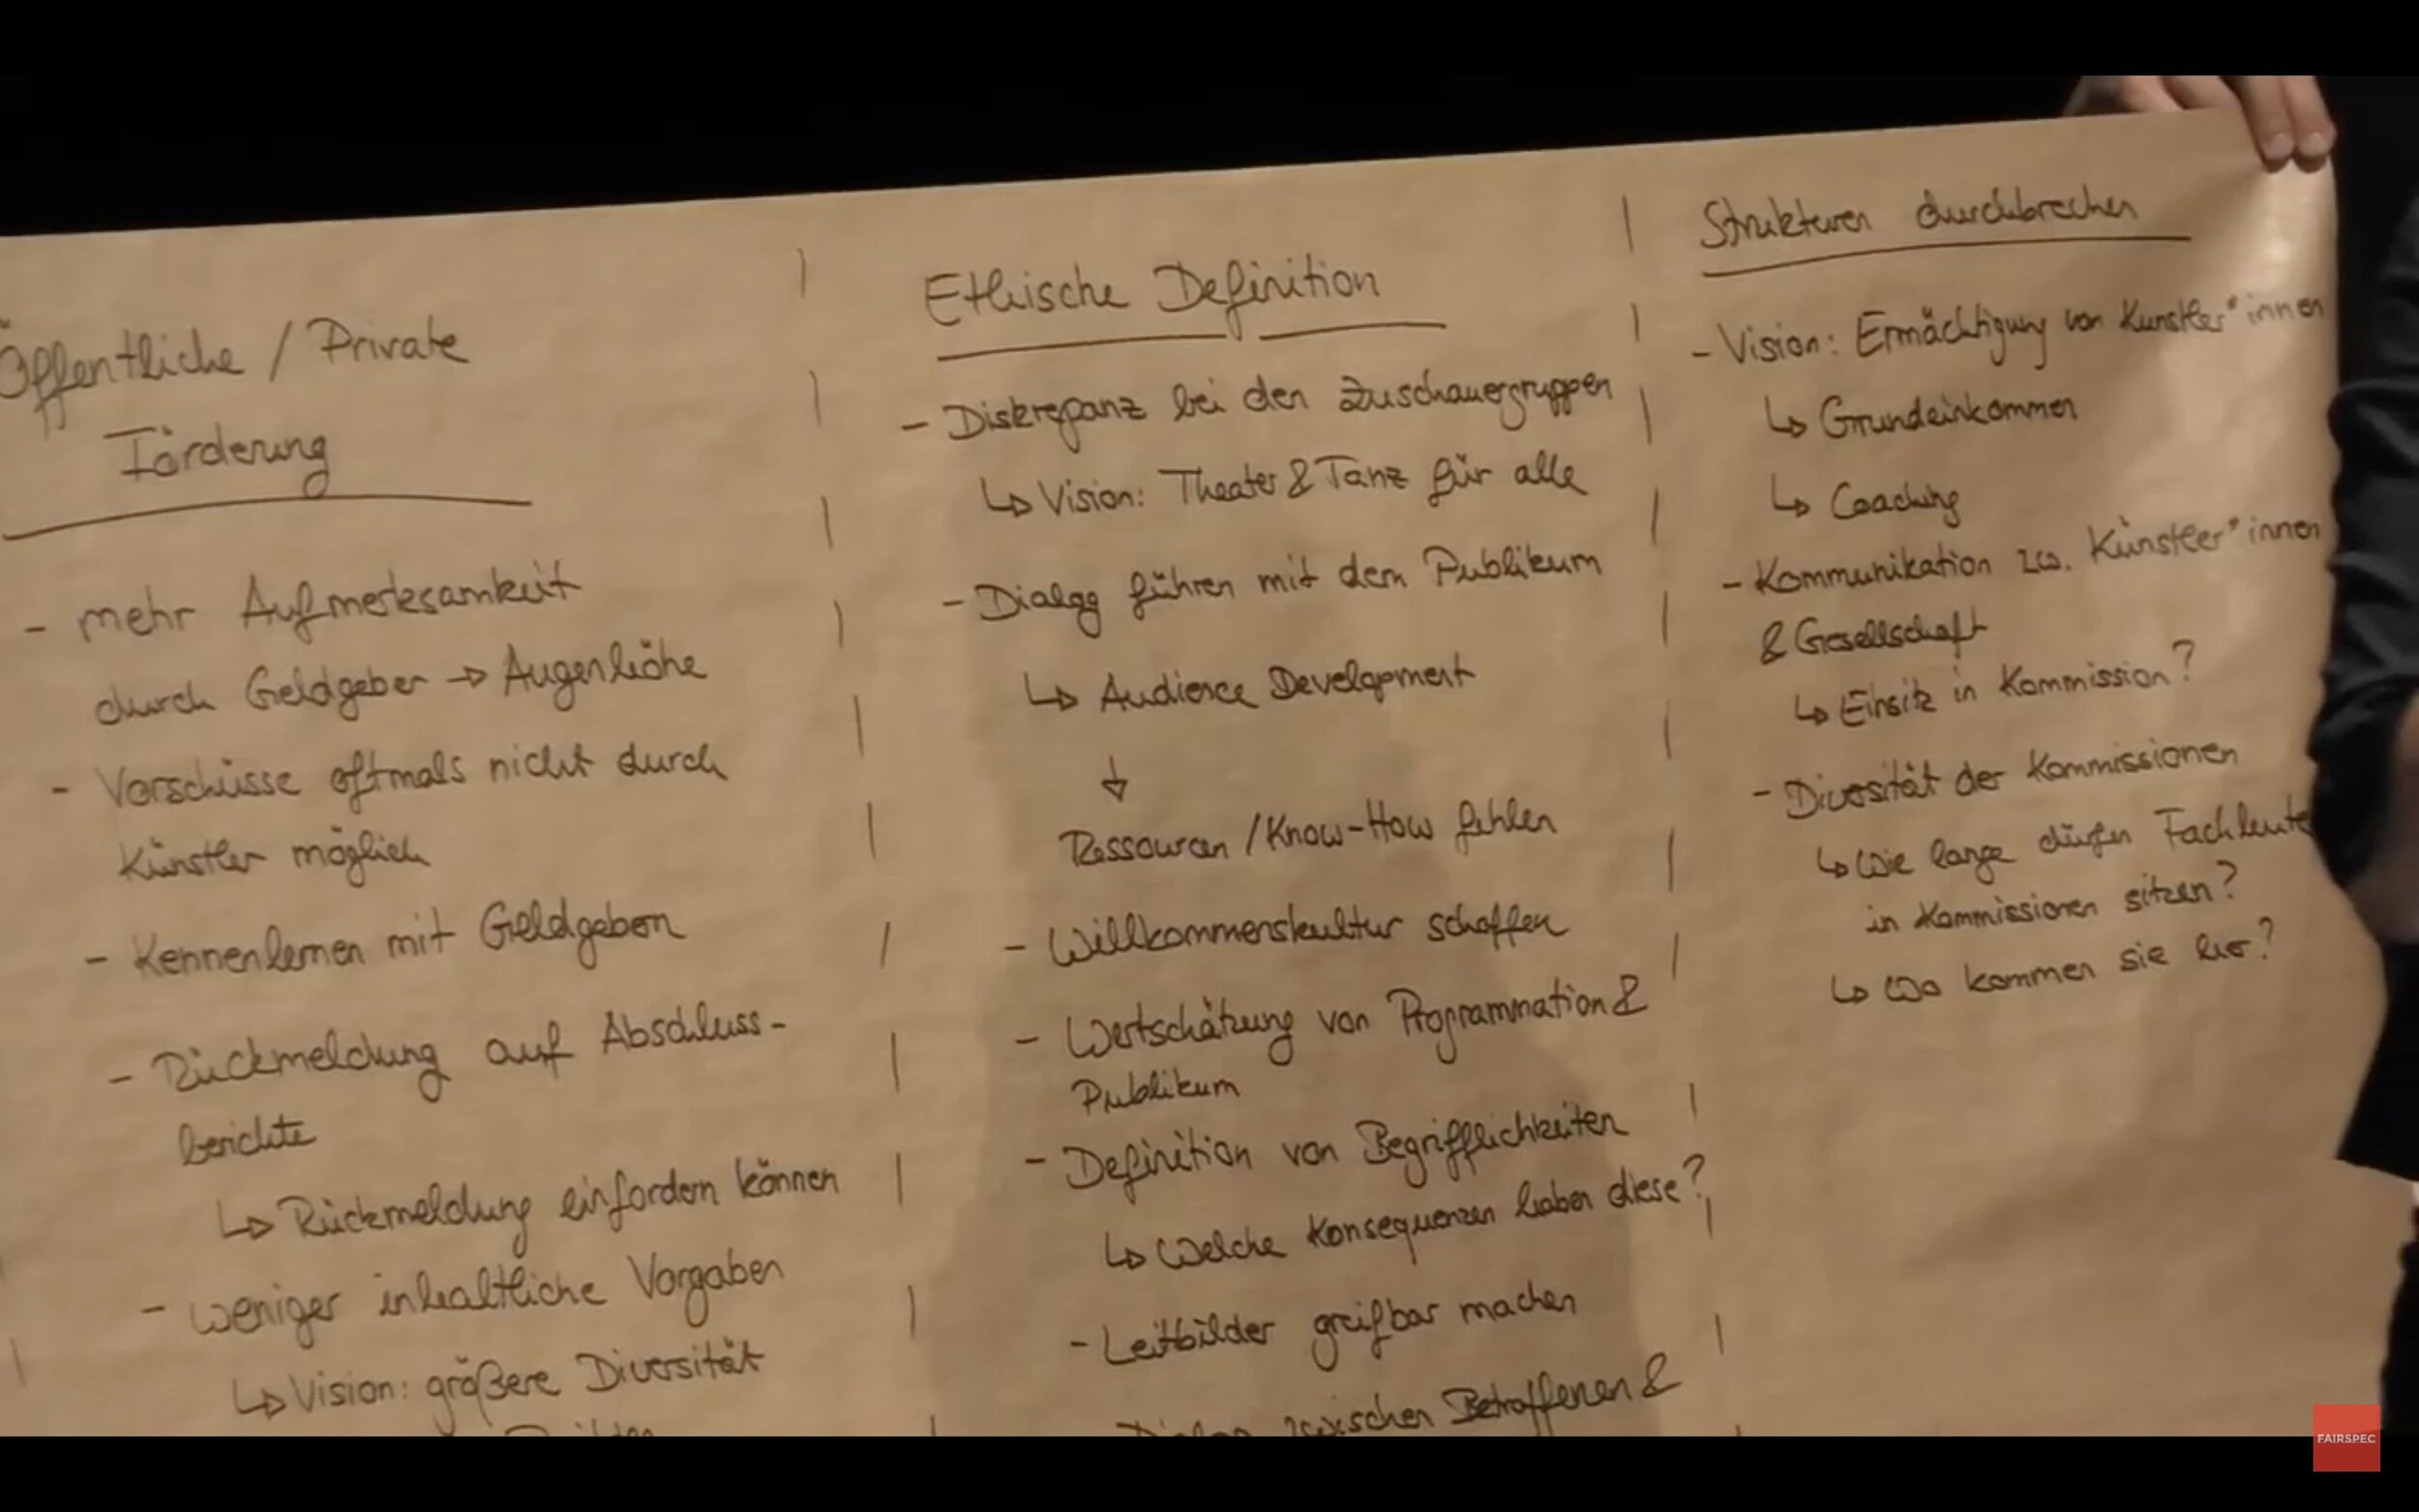 Öffentliche / Private
Förderung
- mehr Aufmerksamkeit
durch Geldgeber → Augenhöhe
- Vorschüsse oftmals nicht durch
Künstler möglich
- Kennenlernen mit Geldgebern
- Rückmeldung auf Abschluss-
berichte
↳ Rückmeldung einfordern können
- weniger inhaltliche Vorgaben
↳ Vision: größere Diversität
Ethische Definition
- Diskrepanz bei den Zuschauergruppen
↳ Vision: Theater & Tanz für alle
- Dialog führen mit dem Publikum
↳ Audience Development
↓
Ressourcen / Know-How fehlen
- Willkommenskultur schaffen
- Wertschätzung von Programmation &
Publikum
- Definition von Begrifflichkeiten
↳ Welche Konsequenzen haben diese?
- Leitbilder greifbar machen
Dialog zwischen Betroffenen &
Strukturen durchbrechen
- Vision: Ermächtigung von Künstler*innen
↳ Grundeinkommen
↳ Coaching
- Kommunikation zw. Künstler*innen
& Gesellschaft
↳ Einsitz in Kommission?
- Diversität der Kommissionen
↳ Wie lange dürfen Fachleute
in Kommissionen sitzen?
↳ Wo kommen sie her?
FAIRSPEC